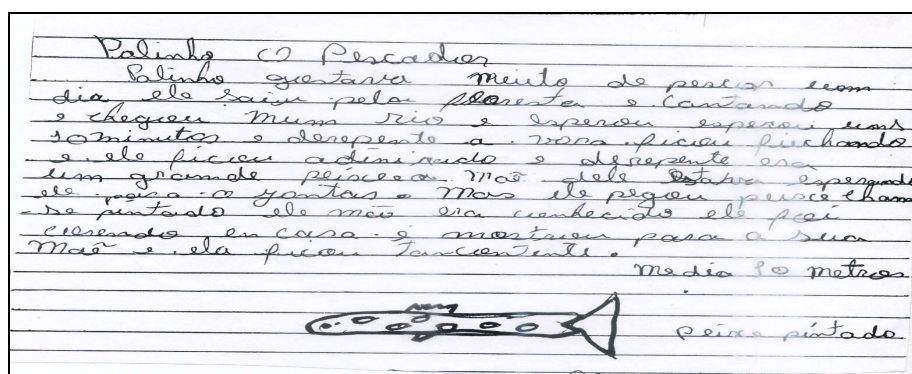 Palinho O Pescador
Palinho gostava muito de pescar um
dia ele saiu pela floresta e cantando
e chegou num rio e esperou esperou uns
10 minutos e derepente a vara ficou puchando
e ele ficou adimirado e derepente era
um grande peisce a maõ dele estava esperando
ele para o jantar. Mas ele pegou peisce cham
se pintado ele mão era conhecido ele foi
correndo en casa e mostrou para a sua
maõ e ela ficou tancontente.
media 10 metros
peixe pintado